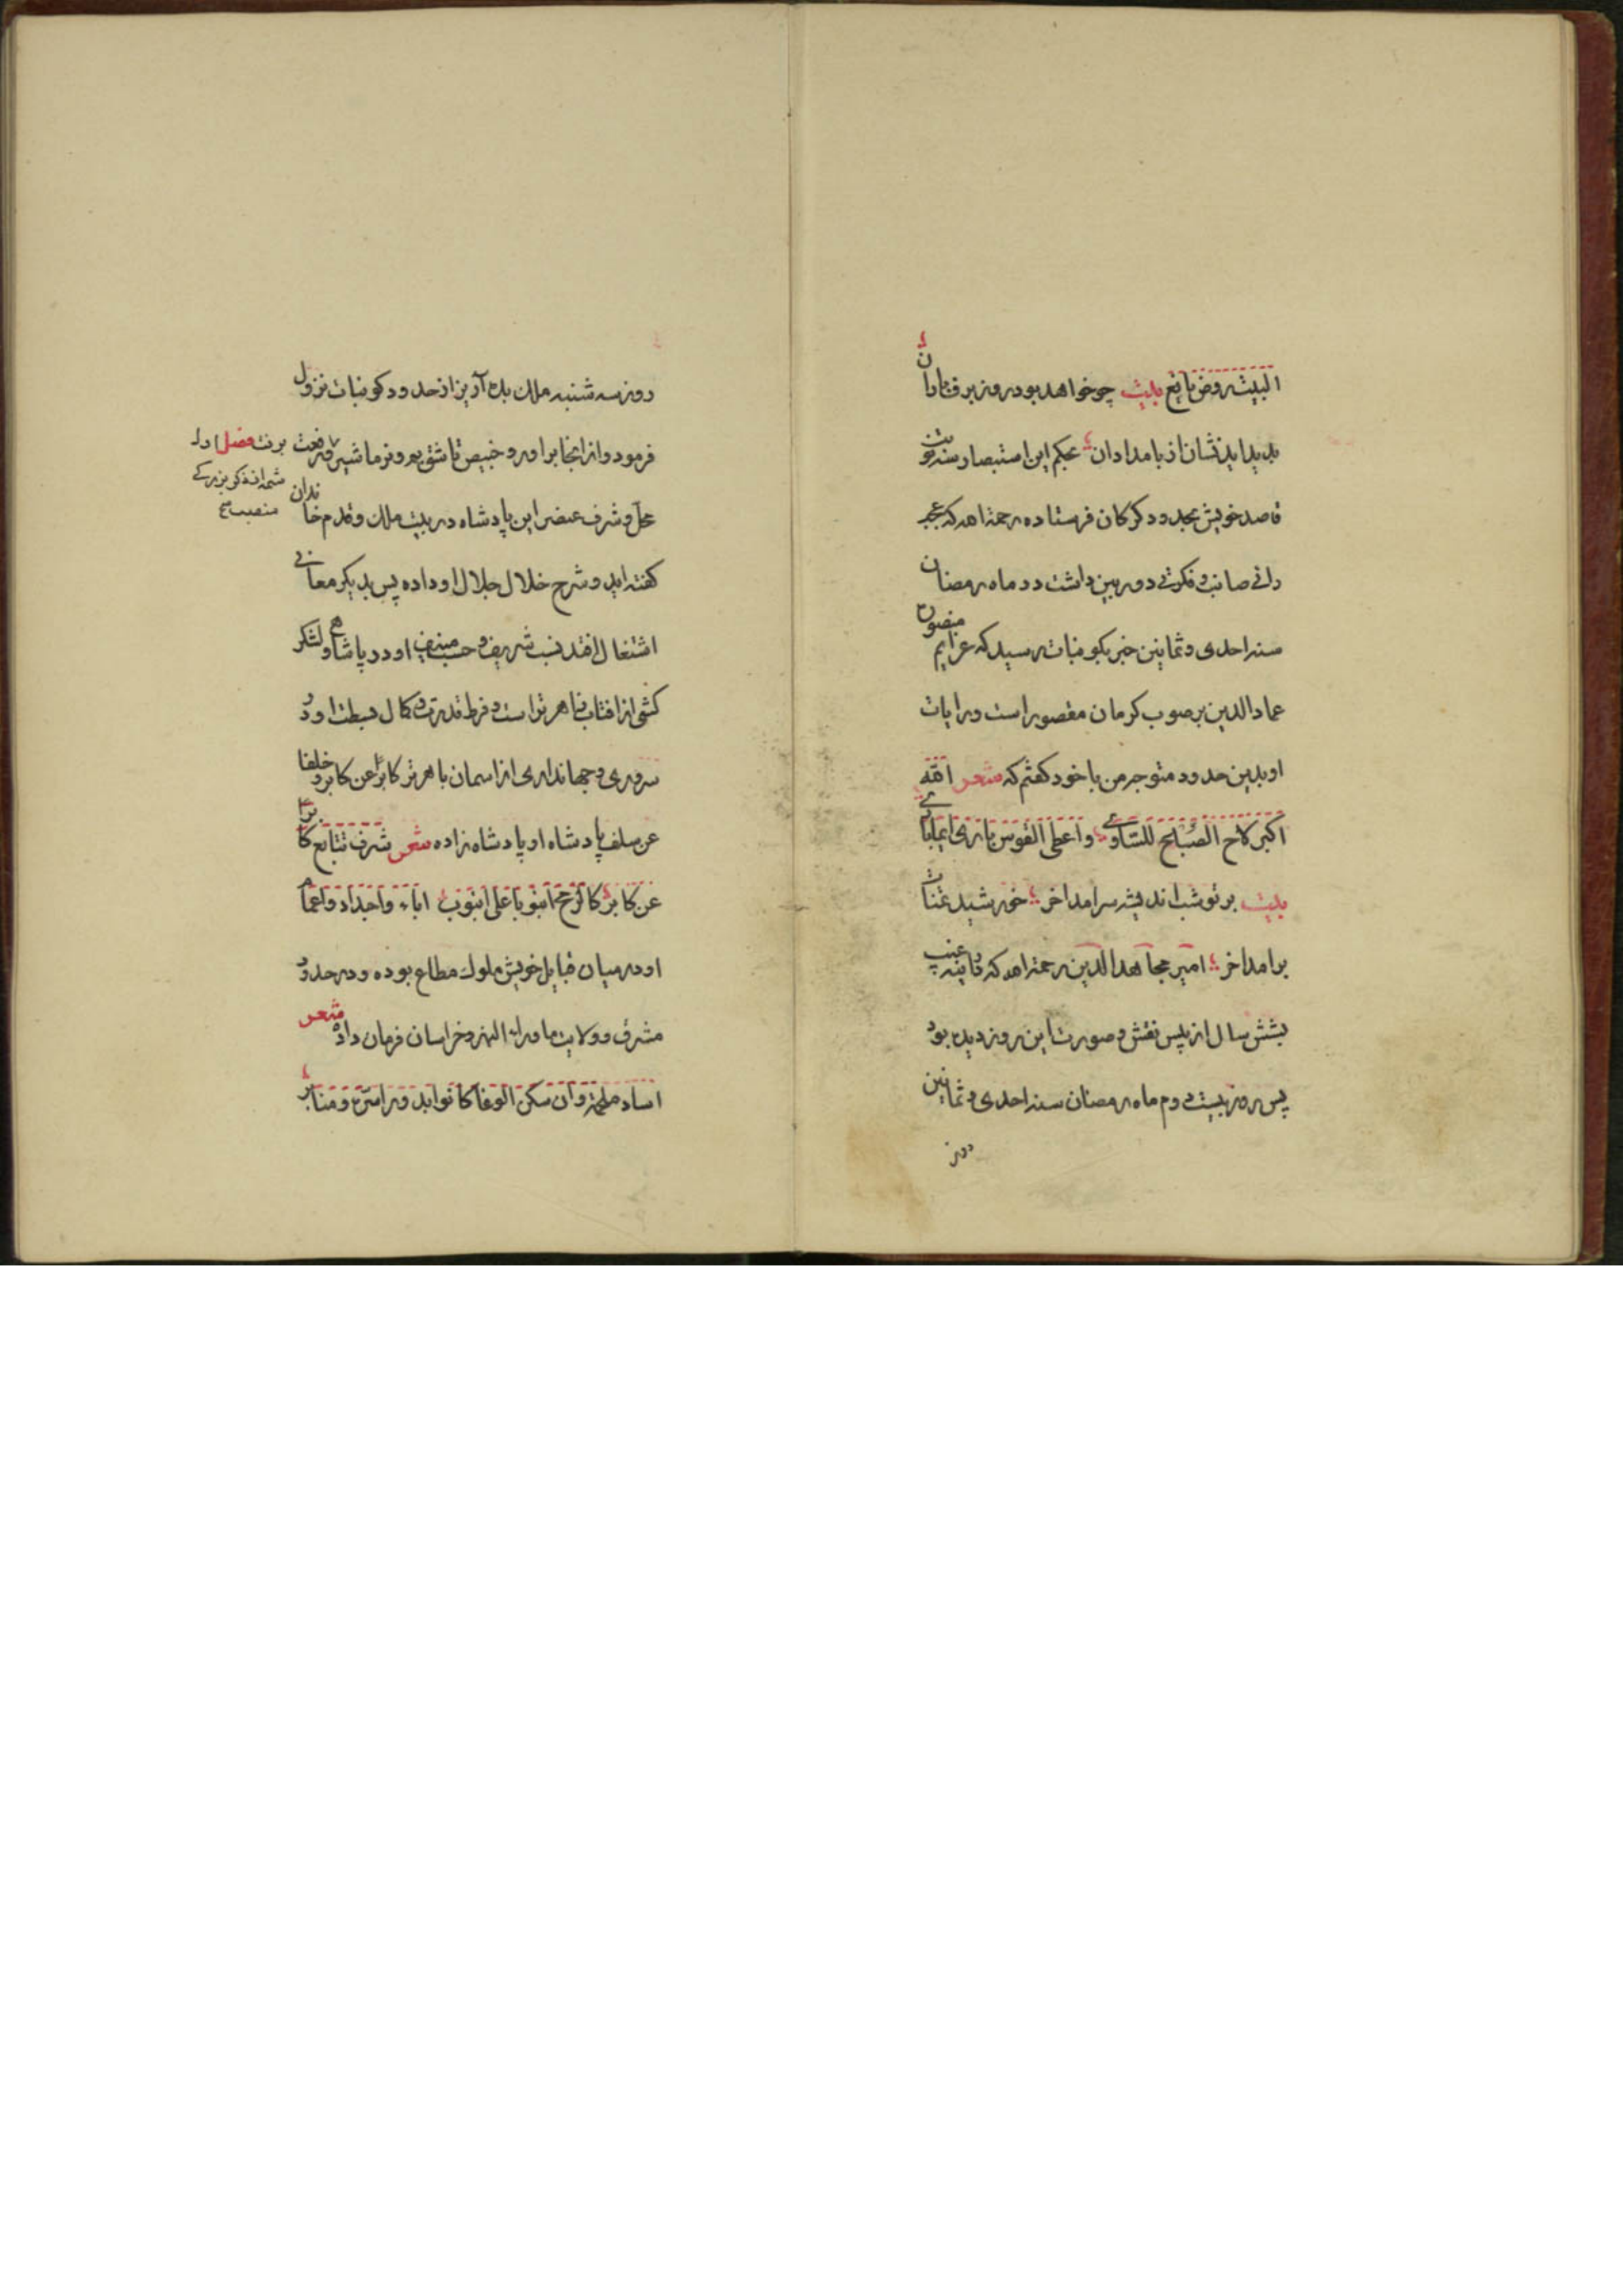 البیت روض یانع بیت چو خواهد بود روز برف و باران
پدید اید نشان از بامدادان بحکم این استبصار سنه تو
قاصد خویش بحدود کرکان فرستاده رحمه الله که عجب
رائی صائب و فکرتی دوربین داشت در ماه رمضان
سنه احدی و ثمانین خبر بکوبنات رسید که عزایم منصور
عماد الدین بر صوب کرمان مقصور است و رایات
او بدین حدود متوجه من با خود کفتم که شعر الله
اکبر لاح الصبح للساری و اعطی القوس باری
بیت بر تو شب اندیشه سرامد اخر خورشید عنایت
برامد اخر امیر مجاهد الدین رحمه الله که در اینه غیب
بشش سال از پس نقش و صورت این روز دیده بود
پس روز بیست و دوم ماه رمضان سنه احدی و ثمانین
روز
روز سه شنبه ملک بدع آریز از حدود کوبنات نزول
فرمود و از انجا براور و خبیص تا شق بم و نرماشیر رفت
برفت فضل در
شمه از ذکر بزرکی
منصب
محل و شرف عنصر این پادشاه در بیت ملک و قدم خاندان
کفته اید و شرح خلال جلال او داده پس بدیکر معانی
اشتغال افتد نسب شریف و حسب منیف او در پادشاهی و لشکر
کشی از افتاب ظاهر تر است و فرط قدرت و کمال بسطت او در
سروری و جهانداری از اسمان باهر تر کابرا عن کابر و خلفا
عن سلف پادشاه او پادشاه زاده شعر شرف تتابع کابرا
عن کابر کالرمح انبوبا علی انبوب اباء و اجداد و اعمام
او در میان قبایل خویش ملوک مطاع بوده و در حدود
مشرق و ولایت ما وراء النهر و خراسان فرمان داده شعر
اساد ملحمة و ان سکن الوغا کانوا بدور اسرة و منابر